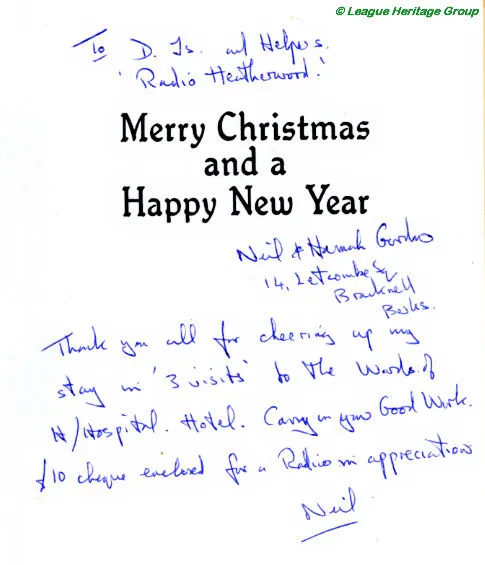 © League Heritage Group
To D. Js. and Helpers.
'Radio Heatherwood.'
Merry Christmas
and a
Happy New Year
Neil & Hannah
14, Letcombe Sq
Bracknell
Berks.
Thank you all for cheering up my
stay in '3 visits' to the Wards of
H/Hospital. Hotel. Carry on your Good Work.
£10 cheque enclosed for a Radio in appreciation
Neil